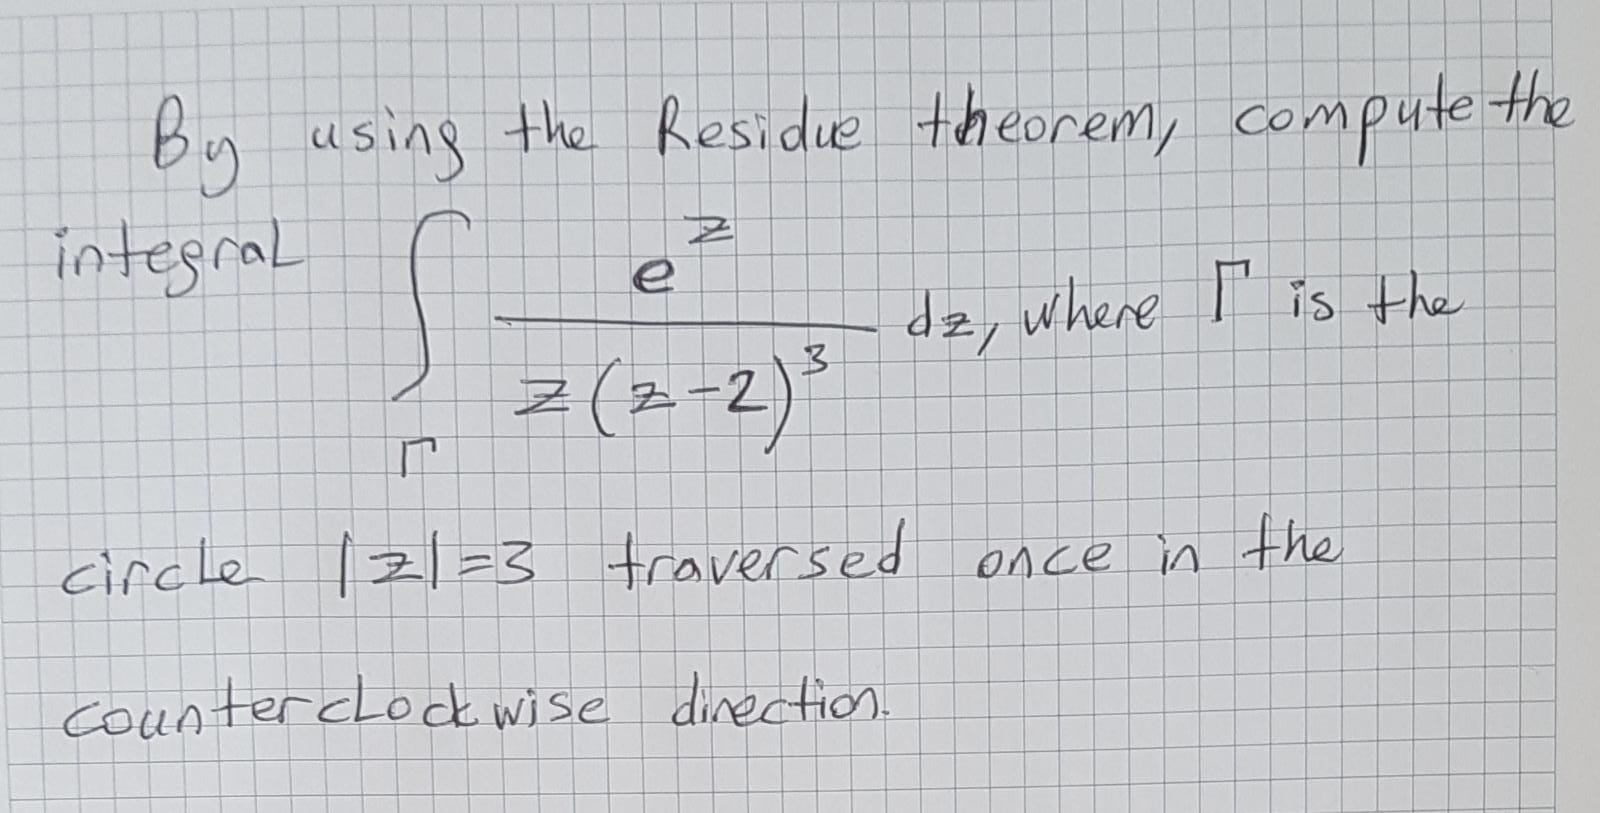 By using the Residue theorem, compute the
integral ∫_Γ e^z / (z(z-2)^3) dz, where Γ is the
circle |z|=3 traversed once in the
counterclockwise direction.